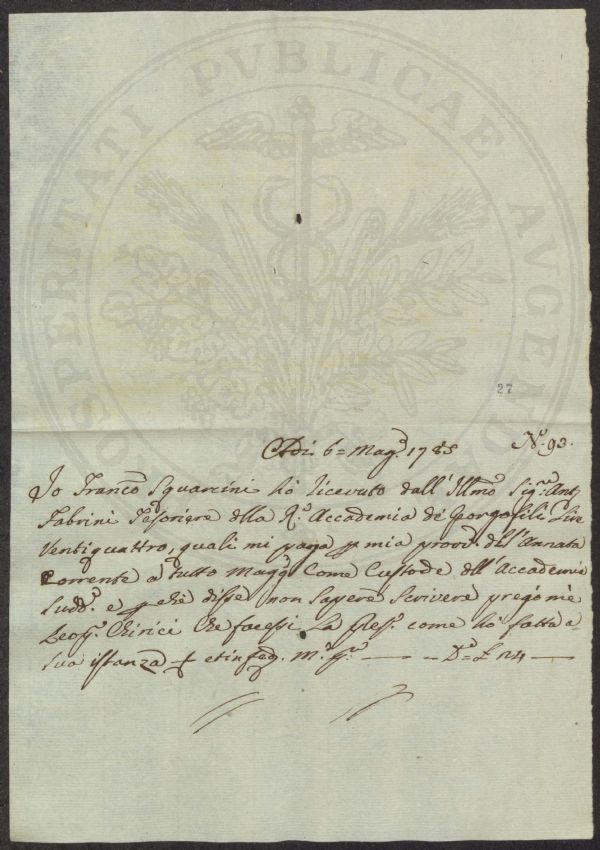 PROSPERITATI PVBLICAE AVGENDAE
27
Adi 6= Magg.º 1785 N.º 93.
Io Franc.º Squarcini hò ricevuto dall' Illmo Sig.re Ant.º
Fabrini Tesoriere della R.e Accademia de Gorgofili Lire
Ventiquattro, quali mi paga p mia provv.e dell'Annata
Corrente a tutto Magg.º Come Custode dell' Accademia
Sudd.a e p che disse non Sapere Scrivere pregò mè
Leop.º Chirici che facessi La ples.e come hò fatto a
Sua istanza et in fed. M.º pp.ª — — D.º= £ 24 —